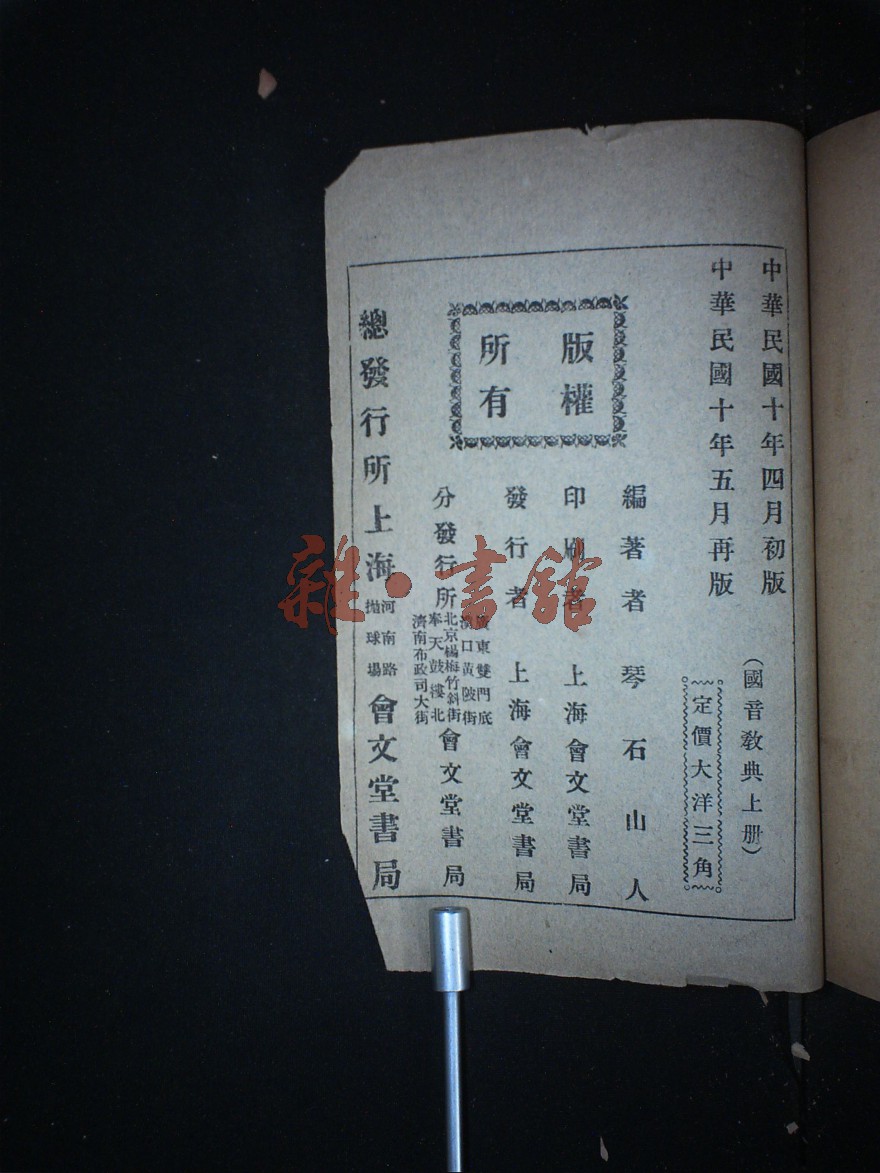 中華民國十年四月初版
中華民國十年五月再版
(國音教典上册)
定價大洋三角
版權
所有
編著者 琴石山人
印刷者 上海會文堂書局
發行者 上海會文堂書局
分發行所 廣東雙門底
漢口黃陂街
北京楊梅竹斜街
奉天鼓樓北
濟南布政司大街
會文堂書局
總發行所 上海 河南路
拋球場
會文堂書局
雜·書館